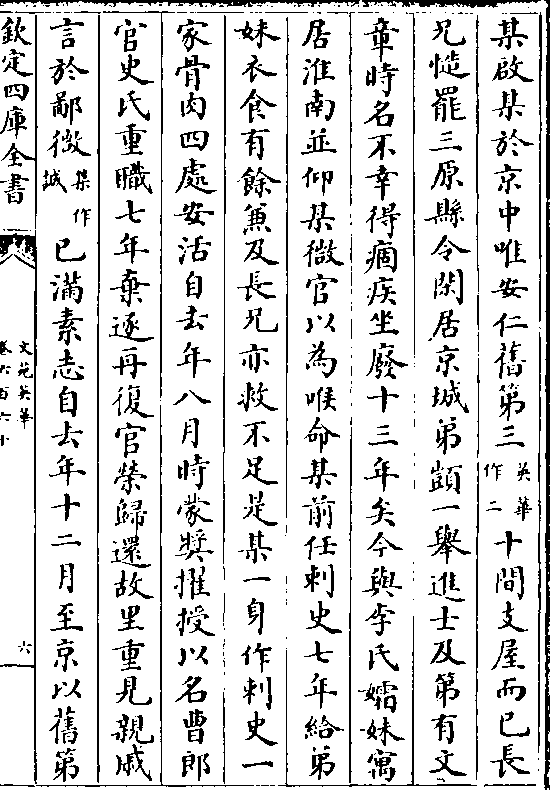 某啟某於京中唯安仁舊第三英華作二十間支屋而已長
兄慥罷三原縣令閑居京城弟顗一舉進士及第有文
章時名不幸得痼疾坐廢十三年矣今與李氏孀妹寓
居淮南並仰某微官以為喉命某前任刺史七年給弟
妹衣食有餘兼及長兄亦救不足是某一身作刺史一
家骨肉四處安活自去年八月時蒙奬擢授以名曹郎
官史氏重職七年棄逐再復官榮歸還故里重見親戚
言於鄙微集作誠已滿素志自去年十二月至京以舊第
欽定四庫全書
文苑英華
卷六百六十
六